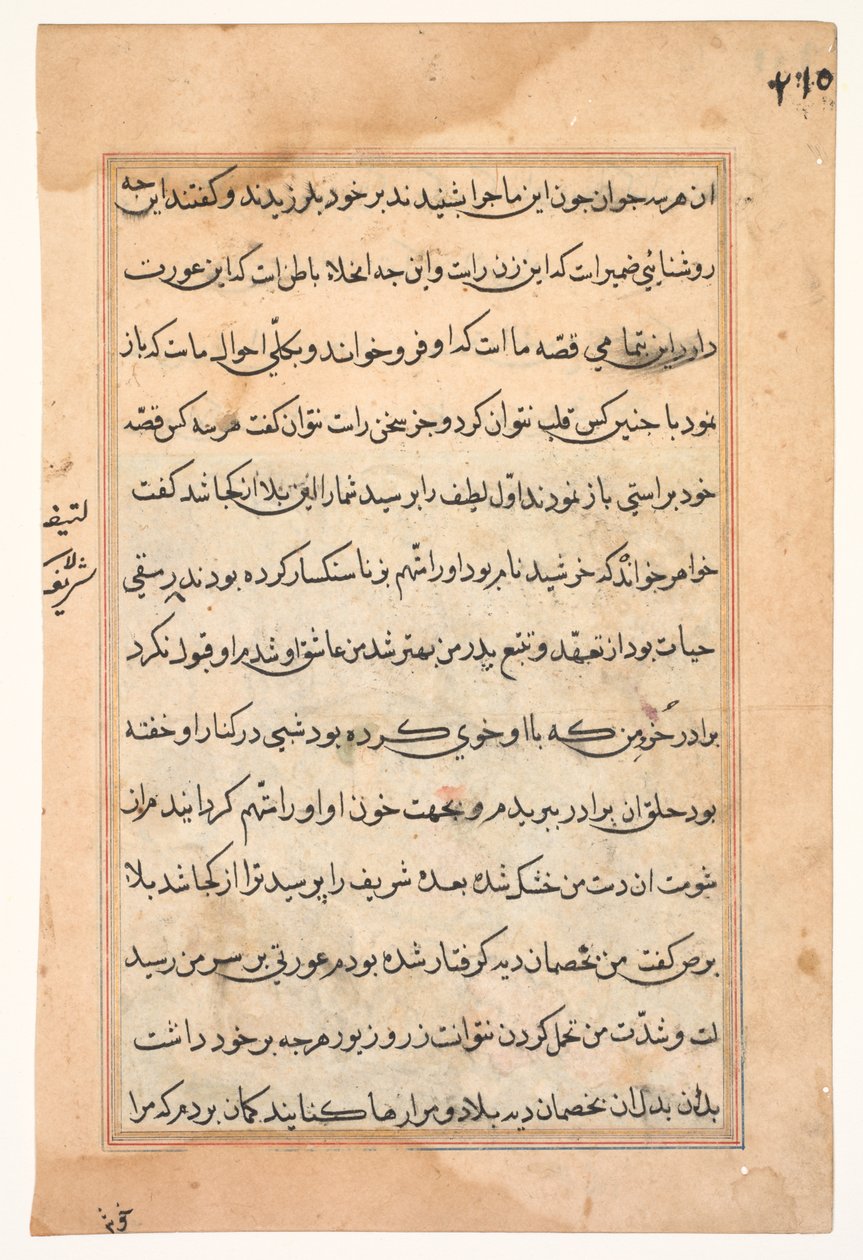 ۲۱۵
ان هر سه جوان جون این ماجرا بشنیدند بر خود بلرزیدند و کفتند این جه
روشنائیی ضمیر است که این زن راست و این جه انخلاء باطن است که این عورت
دارد این بتمامی قصّه ما است که او فرو خواند و بکلّی احوال ماست که باز
نمود با جنین کس قلب نتوان کرد و جز سخن راست نتوان کفت هر سه کس قصّه
خود براستی باز نمودند اوّل لطیف را برسید شما را این بلا از کجا شد کفت
خواهر خوانده که خرشید نام بود او را متّهم بزنا سنکسار کرده بودند رمقی
حیات بود از تعهّد و تتبع بدر من بهتر شد من عاشق او شدم او قبول نکرد
برادر خُرد من که با او خوی کرده بود شبی در کنار او خفته
بود حلق ان برادر ببریدم و بجهت خون او او را متّهم کردانیدم از
شومت ان دست من خشک شده بعده شریف را برسید ترا از کجا شد بلاء
برص کفت من بخصمان دیه کرفتار شده بودم عورتی بر سر من رسید
لت و شدّت من تحمل کردن نتوانست زر و زیور هرجه بر خود داشت
بدان بدل ان بخصمان دیه بداد و مرا رها کنانید کمان بردم که مرا
لتیف
شریف